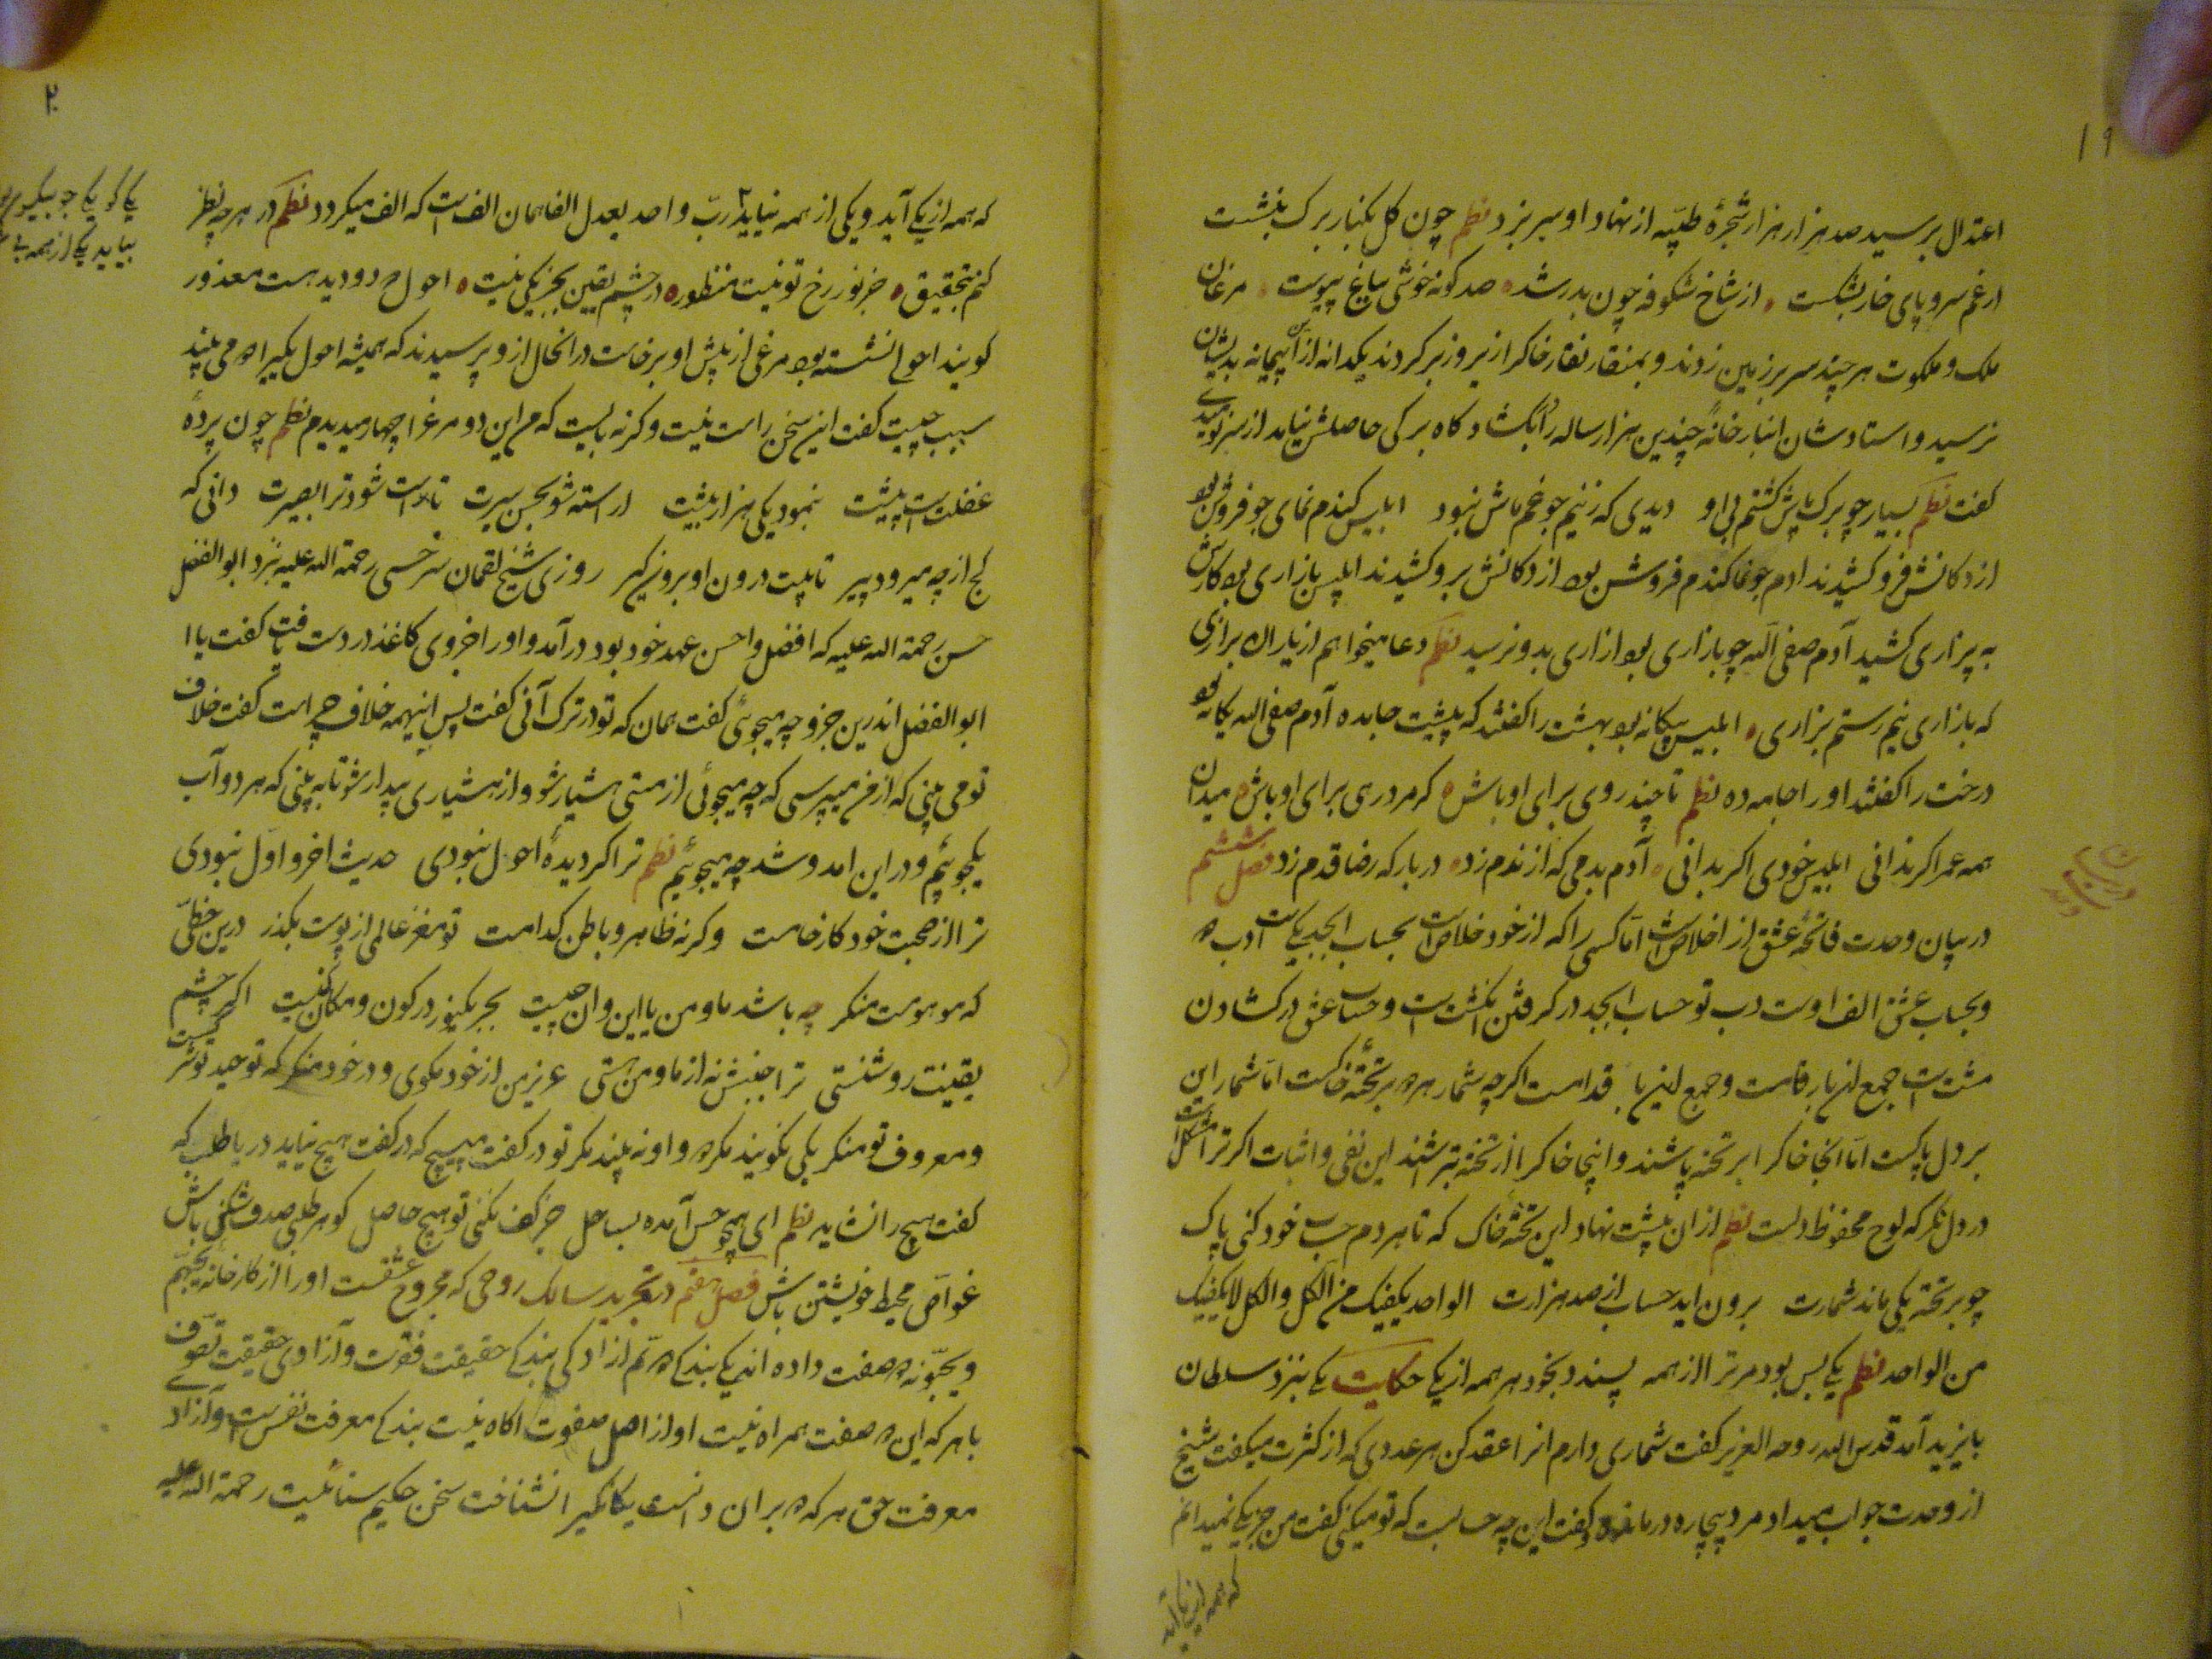 ۱۹
اعتدال برسید صد هزار هزار شجرهٔ طیّبه از نهاد او سر بزد نظم چون کل بکنار برک بنشست
از غم سر و پای خار بشکست از شاخ شکوفه چون بدر شد صد کونه خوشی بباغ پیوست مرغان
ملک و ملکوت هر چند سر بر زمین زدند و بمنقار نقار خاک را زیر و زبر کردند یکدانه از آن پیمانه بدیشان
نرسید و استادشان انبار خانهٔ چندین هزار ساله را بکشاد کاه برکی حاصلش نیامد از سر نومیدی
کفت نظم بسیار چو برک پاش کشتم بی او دیدی که زنیم جو غم ماش نبود ابلیس کندم نمای جو فروش بود
از دکانش فرو کشیدند ادم جو نما کندم فروش بود از دکانش بر و کشیدند ابلیس بازاری بود کارش
به بیزاری کشید آدم صفی الله چو بازاری بود ازاری بدو نرسید نظم دعا میخواهم از یاران برازی
که بازاری نیم رستم بزاری ابلیس بیکانه بود بهشت را کفتند که پیشت جا بده آدم صفی الله یکانه بود
درخت را کفتند او را جامه ده نظم تا چند روی برای اوباش کر مرد رهی برای او باش میدان
همه عمر اکر بدانی ابلیس خودی اکر بدانی آدم بدمی که از ندم زد در بارکه رضا قدم زد فصل ششم
در بیان وحدت فاتحهٔ عشق از اخلاص است امّا کسی را که از خود خلاص است بحساب ابجد یکیست ادب
و بحساب عشق الف اوست دب تو حساب ابجد در کرفتن انکشت است و حساب عشق در کشادن
مشت است جمع این با رقامست و جمع این با قدامست اکرچه شمار هر بر تختهٔ خاکست امّا شمار این
بر دل پاکست امّا انجا خاک را بر تخته پاشند و اینجا خاک را از تخته بتراشند این نفی و اثبات اکر ترا مشکل است
در دل نکر که لوح محفوظ دلست نظم از ان پیشت نهاد این تختهٔ خاک که تا هر دم حساب خود کنی پاک
چو بر تخته یکی ماند شمارت برون اید حساب از صد هزارت الواحد یکفیک من الکل والکل لایکفیک
من الواحد نظم یکی بس بود مر ترا از همه پسند و بخود هر همه از یکی حکایت یکی بنزد سلطان
بایزید آمد قدس الله روحه العزیز کفت شماری دارم انرا عقد کن هر عددی که از کثرت میکفت شیخ
از وحدت جواب میداد مرد بیچاره درمانده کفت این چه حسابست که تو میکنی کفت من جز یکی نمیدانم
که همه از یکی آید
۲
که همه از یکی آید و یکی از همه نیاید ربّ واحد یعدل الفا همان الفست که الف میکردد نظم در هر چه نظر
کنم بتحقیق جز نور رخ تو نیست منظور در چشم یقین بجز یکی نیست احول دو دیدهست معذور
کویند احولی نشسته بود مرغی از پیش او برخاست در انحال از و پرسیدند که همیشه احول یکی را دو می بیند
سبب چیست کفت این سخن راست نیست وکرنه بایستی که من این دو مرغ را چهار میدیدم نظم چون پردهٔ
غفلت است پیشت بنمود یکی هزار بیشت اراسته شو بحسن سیرت تا راست شود ترا بصیرت دانی که
کج از چه میرود پیر تا پیت درون او برون کیر روزی شیخ لقمان سرخسی رحمة الله علیه نزد ابو الفضل
حسن رحمة الله علیه که افضل و احسن عهد خود بود در آمد و او را جزوی کاغذ در دست یافت کفت یا ا
ابوالفضل اندرین جزو چه میجویی کفت همان که تو در ترک آنی کفت پس اینهمه خلاف چراست کفت خلاف
تو می بینی که از من میپرسی که چه میجوئی از مستی هشیار شو و از هشیاری بیدار شو تا به بینی که هر دو آب
یکجوئیم و در این امد و شد چه میجوئیم نظم ترا اکر دیدهٔ احول نبودی حدیث اخر و اوّل نبودی
ترا از صحبت خود کار خامست وکرنه ظاهر و باطن کدامست تو مغز عالمی از پوست بکذر درین خطی
که موهومست منکر چه باشد ما و من یا این و ان چیست بجز یکنور در کون و مکان نیست اکر چشم
یقینت روشنستی ترا جنبش نه از ما و من هستی عزیز من از خود مکوی و در خود منکر که توحید
و معروف تو منکر یکی نکویند مکر و او نه بیند مکر تو در کفت میپیچ که در کفت هیچ نیاید دریا طلب که
کفت هیچ را نشاید نظم ای همچو خس آمده بساحل جز کف نکنی تو هیچ حاصل کوهر طلبی صدف شکن باش
غوّاص محیط خویشتن باش فصل هفتم در تجرید سالک روحی که مجروح عشقست او را از کارخانهٔ یحبهم
و یحبّونه دو صفت داده اند یکی بندکی دوّم ازادکی بندکی حقیقت فقرست و آزادی حقیقت تصوّف
با هر که این دو صفت همراه نیست او از اهل صفوت اکاه نیست بندکی معرفت نفس است و آزادی
معرفت حق هر که بر ان دانست یکانکی را نشناخت سخن حکیم سنائیست رحمة الله علیه